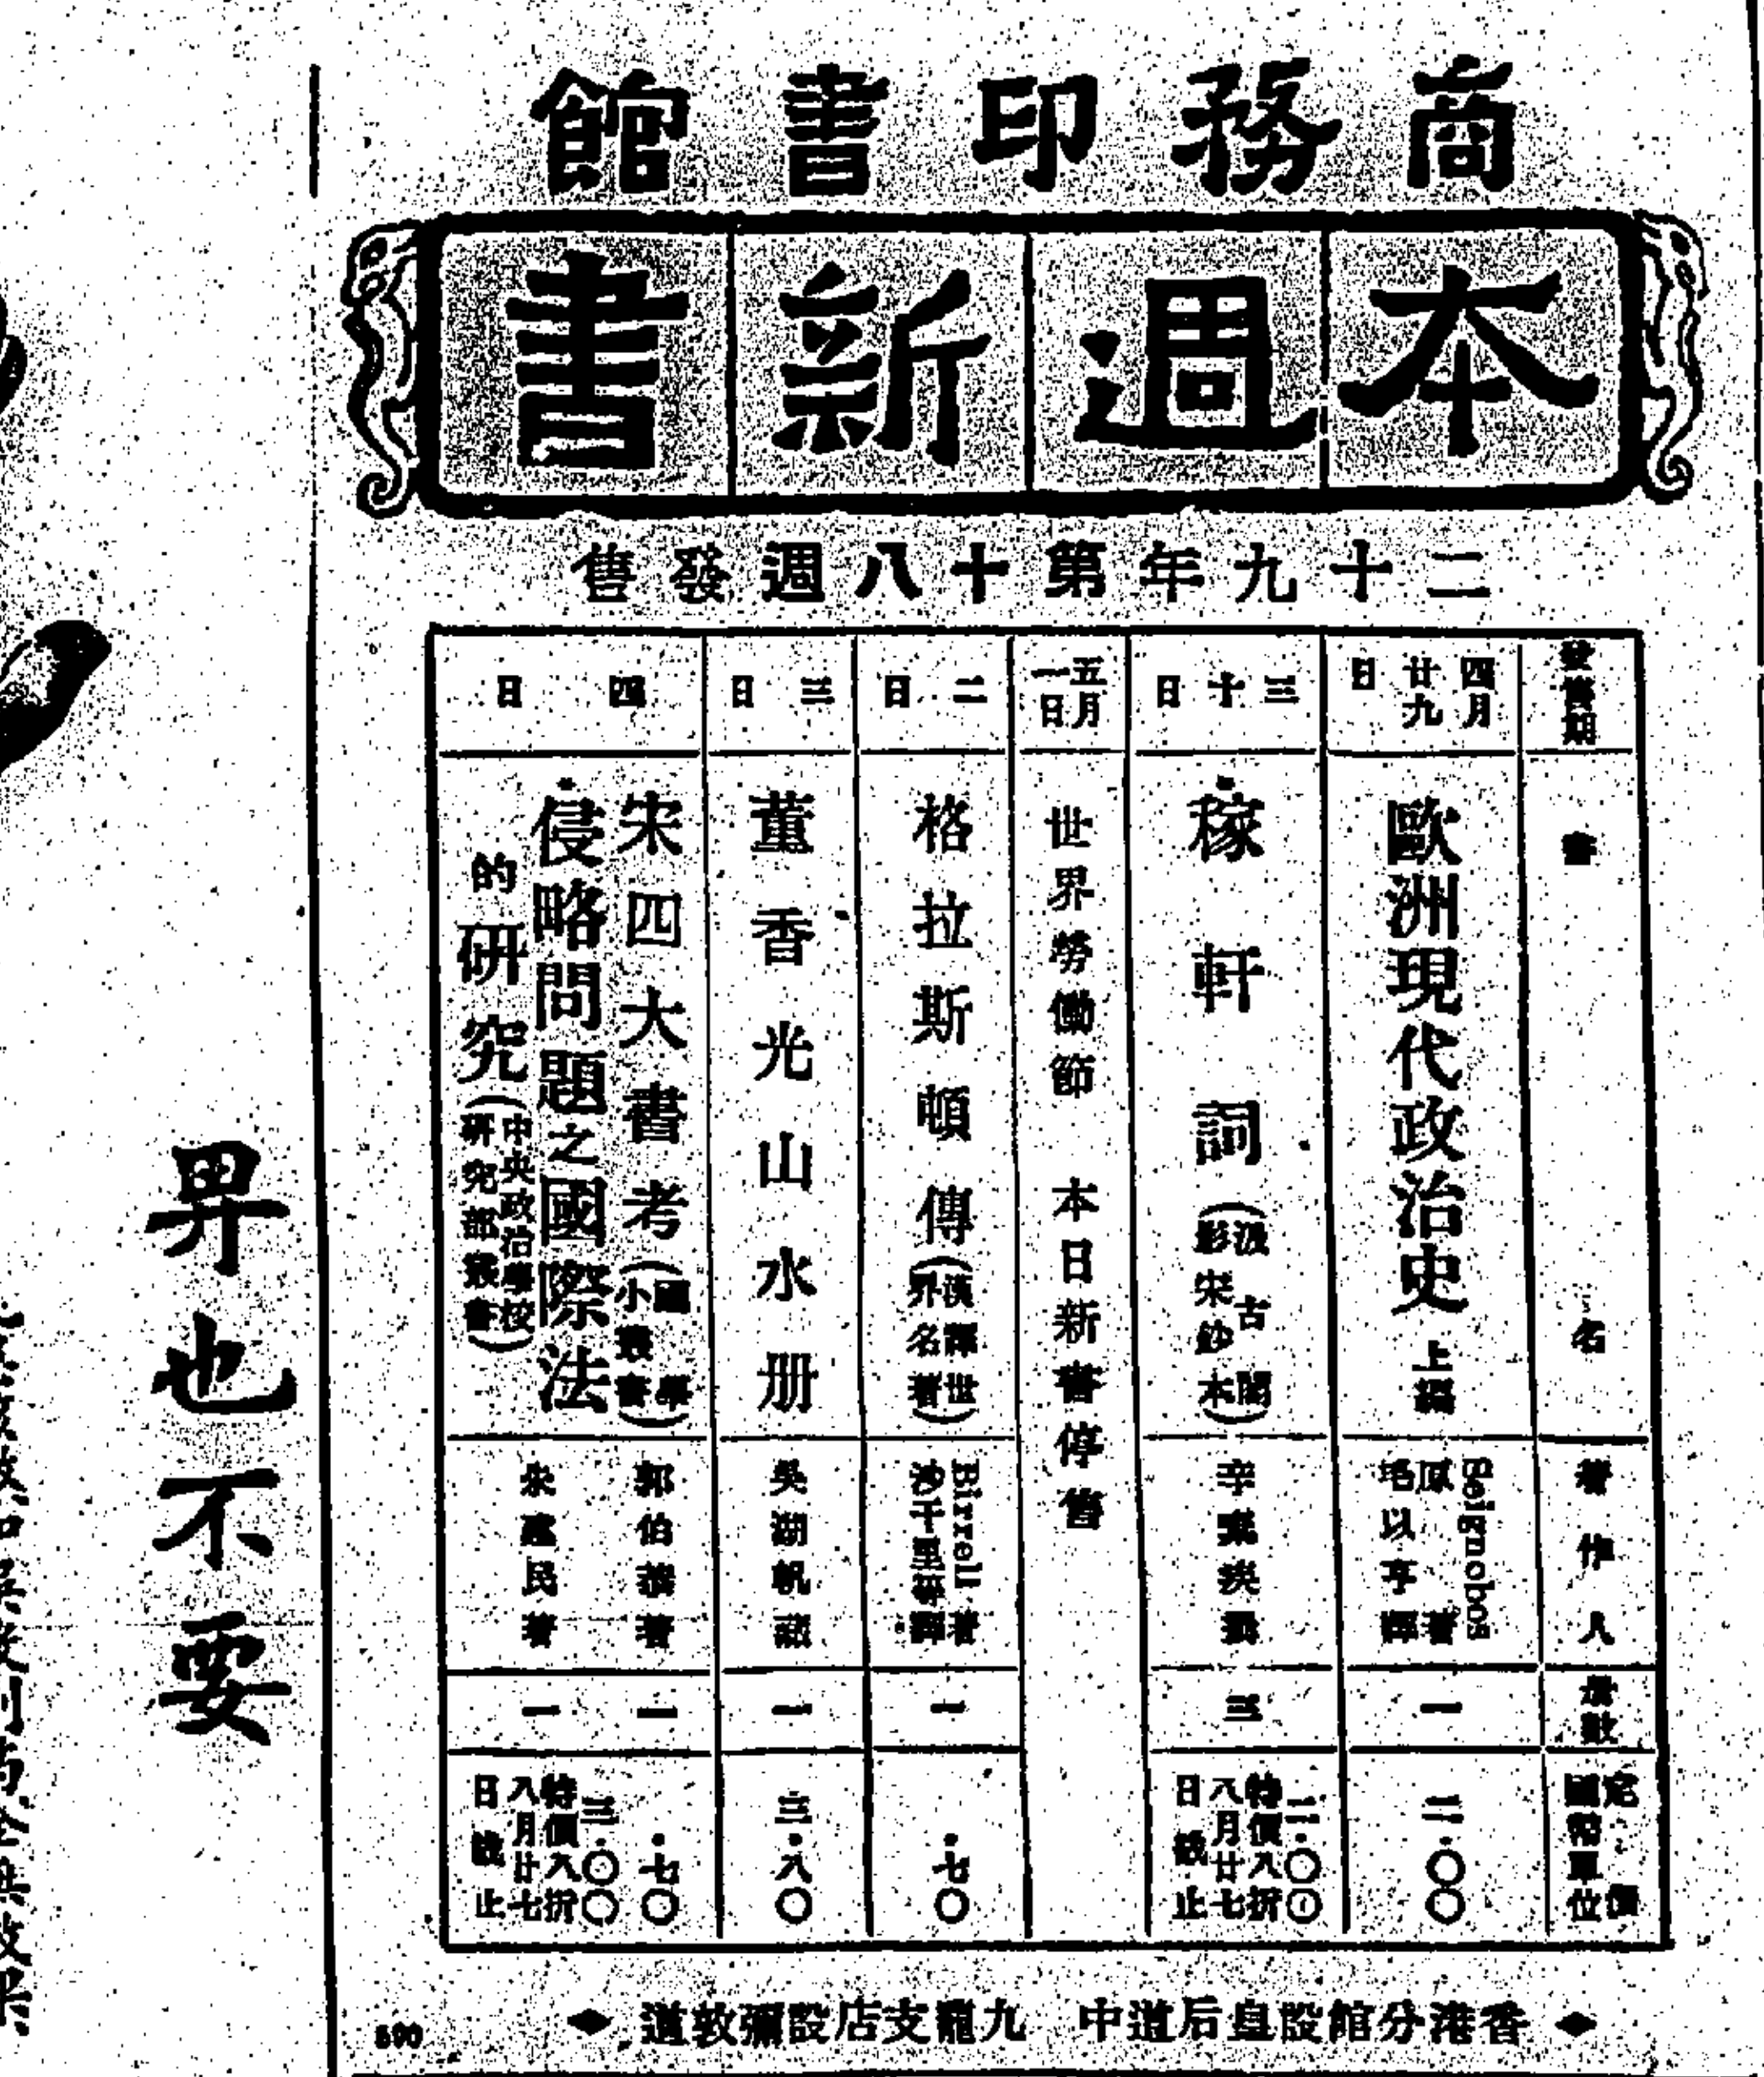 商務印書館
本週新書
二十九年第十八週發售
發售期
書名
著作人
册數
定價
國幣單位
四月
廿九
日
歐洲現代政治史 上編
Seignobos
原著
毛以亨譯
一
二.〇〇
三十日
稼軒詞
(汲古閣
影宋鈔本)
辛棄疾撰
三
二.〇〇
特價八折
八月廿七
日截止
五月
一日
世界勞働節 本日新書停售
二日
格拉斯頓傳
(漢譯世
界名著)
Birrell 著
沙千里等譯
一
.七〇
三日
董香光山水册
吳湖帆藏
一
三.八〇
四日
宋四大書考
(國學
小叢書)
郭伯恭著
一
.七〇
侵略問題之國際法
的研究
(中央政治學校
研究部叢書)
朱建民著
一
三.〇〇
特價八折
八月廿七
日截止
香港分館設皇后道中 九龍支店設彌敦道
590
畀也不要